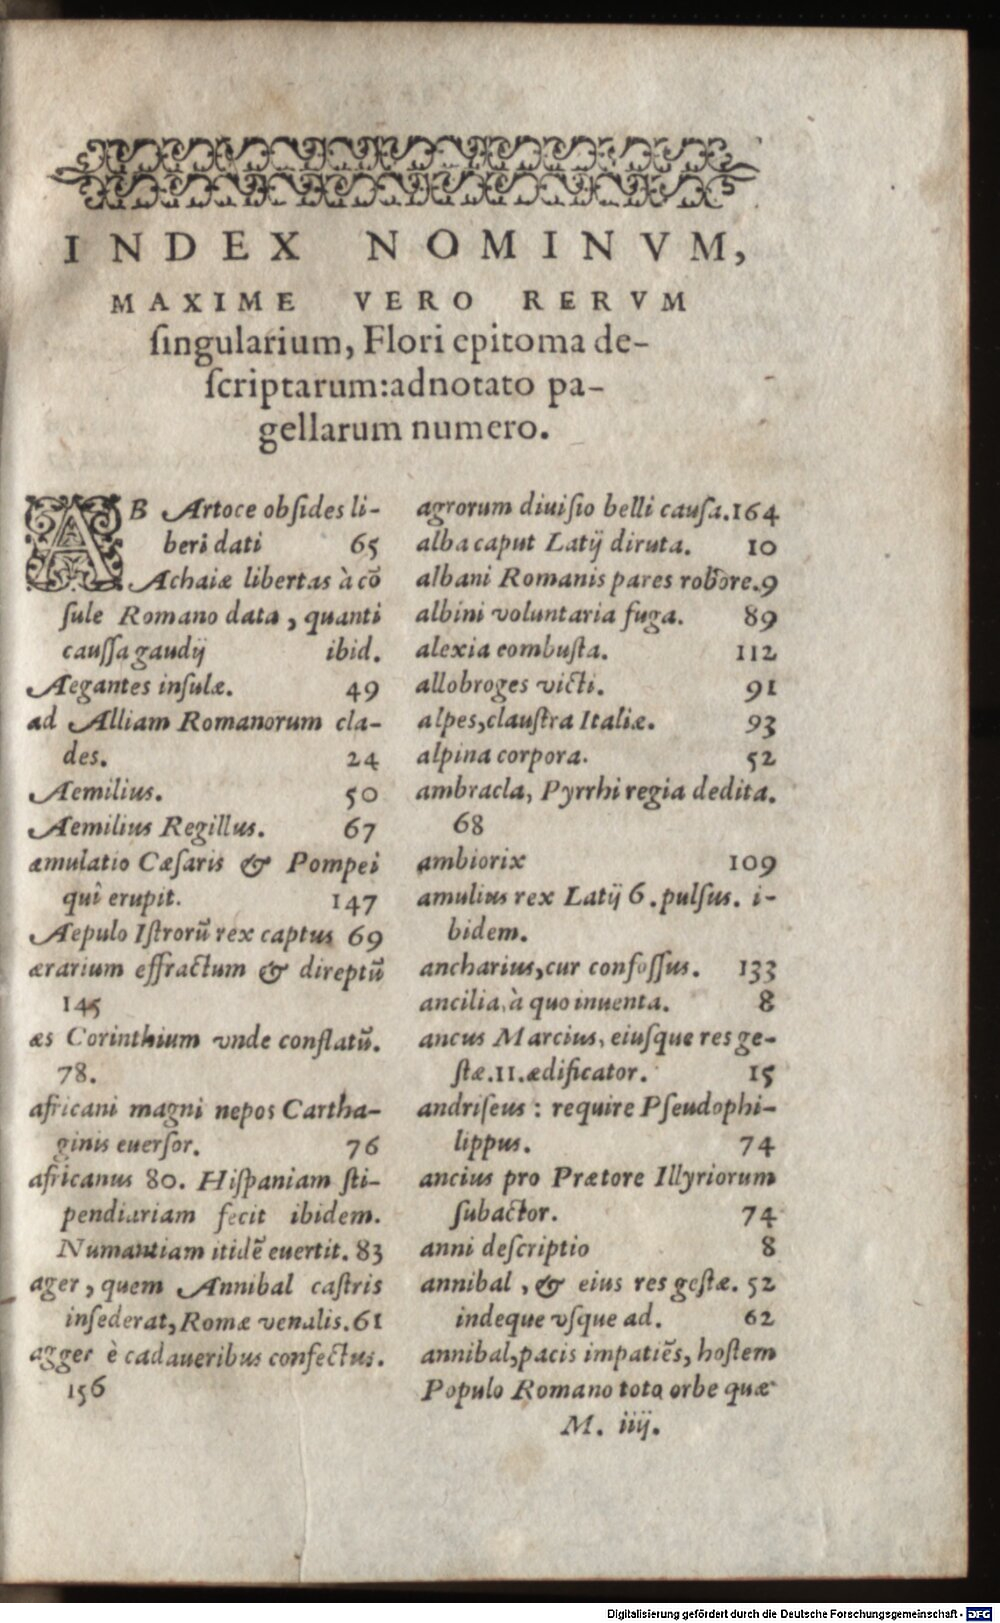 INDEX NOMINVM,
MAXIME VERO RERVM
ſingularium, Flori epitoma de-
ſcriptarum:adnotato pa-
gellarum numero.
AB Artoce obſides li-
beri dati 65
Achaiæ libertas à cõ
ſule Romano data, quanti
cauſſa gaudij ibid.
Aegantes inſulæ. 49
ad Alliam Romanorum cla-
des. 24
Aemilius. 50
Aemilius Regillus. 67
æmulatio Cæſaris & Pompei
quî erupit. 147
Aepulo Iſtrorũ rex captus 69
ærarium effractum & direptũ
145
æs Corinthium vnde conflatũ.
78.
africani magni nepos Cartha-
ginis euerſor. 76
africanus 80. Hiſpaniam ſti-
pendiariam fecit ibidem.
Numantiam itidẽ euertit. 83
ager, quem Annibal caſtris
inſederat, Romæ venalis. 61
agger è cadaueribus confectus.
156
agrorum diuiſio belli cauſa. 164
alba caput Latij diruta. 10
albani Romanis pares robore. 9
albini voluntaria fuga. 89
alexia combuſta. 112
allobroges victi. 91
alpes, clauſtra Italiæ. 93
alpina corpora. 52
ambracla, Pyrrhi regia dedita.
68
ambiorix 109
amulius rex Latij 6. pulſus. i-
bidem.
ancharius, cur confoſſus. 133
ancilia, à quo inuenta. 8
ancus Marcius, eiuſque res ge-
ſtæ. 11. ædificator. 15
andriſeus: require Pſeudophi-
lippus. 74
ancius pro Prætore Illyriorum
ſubactor. 74
anni deſcriptio 8
annibal, & eius res geſtæ. 52
indeque vſque ad. 62
annibal, pacis impatiẽs, hoſtem
Populo Romano toto orbe quæ
M. iiij.
Digitalisierung gefördert durch die Deutsche Forschungsgemeinschaft - DFG